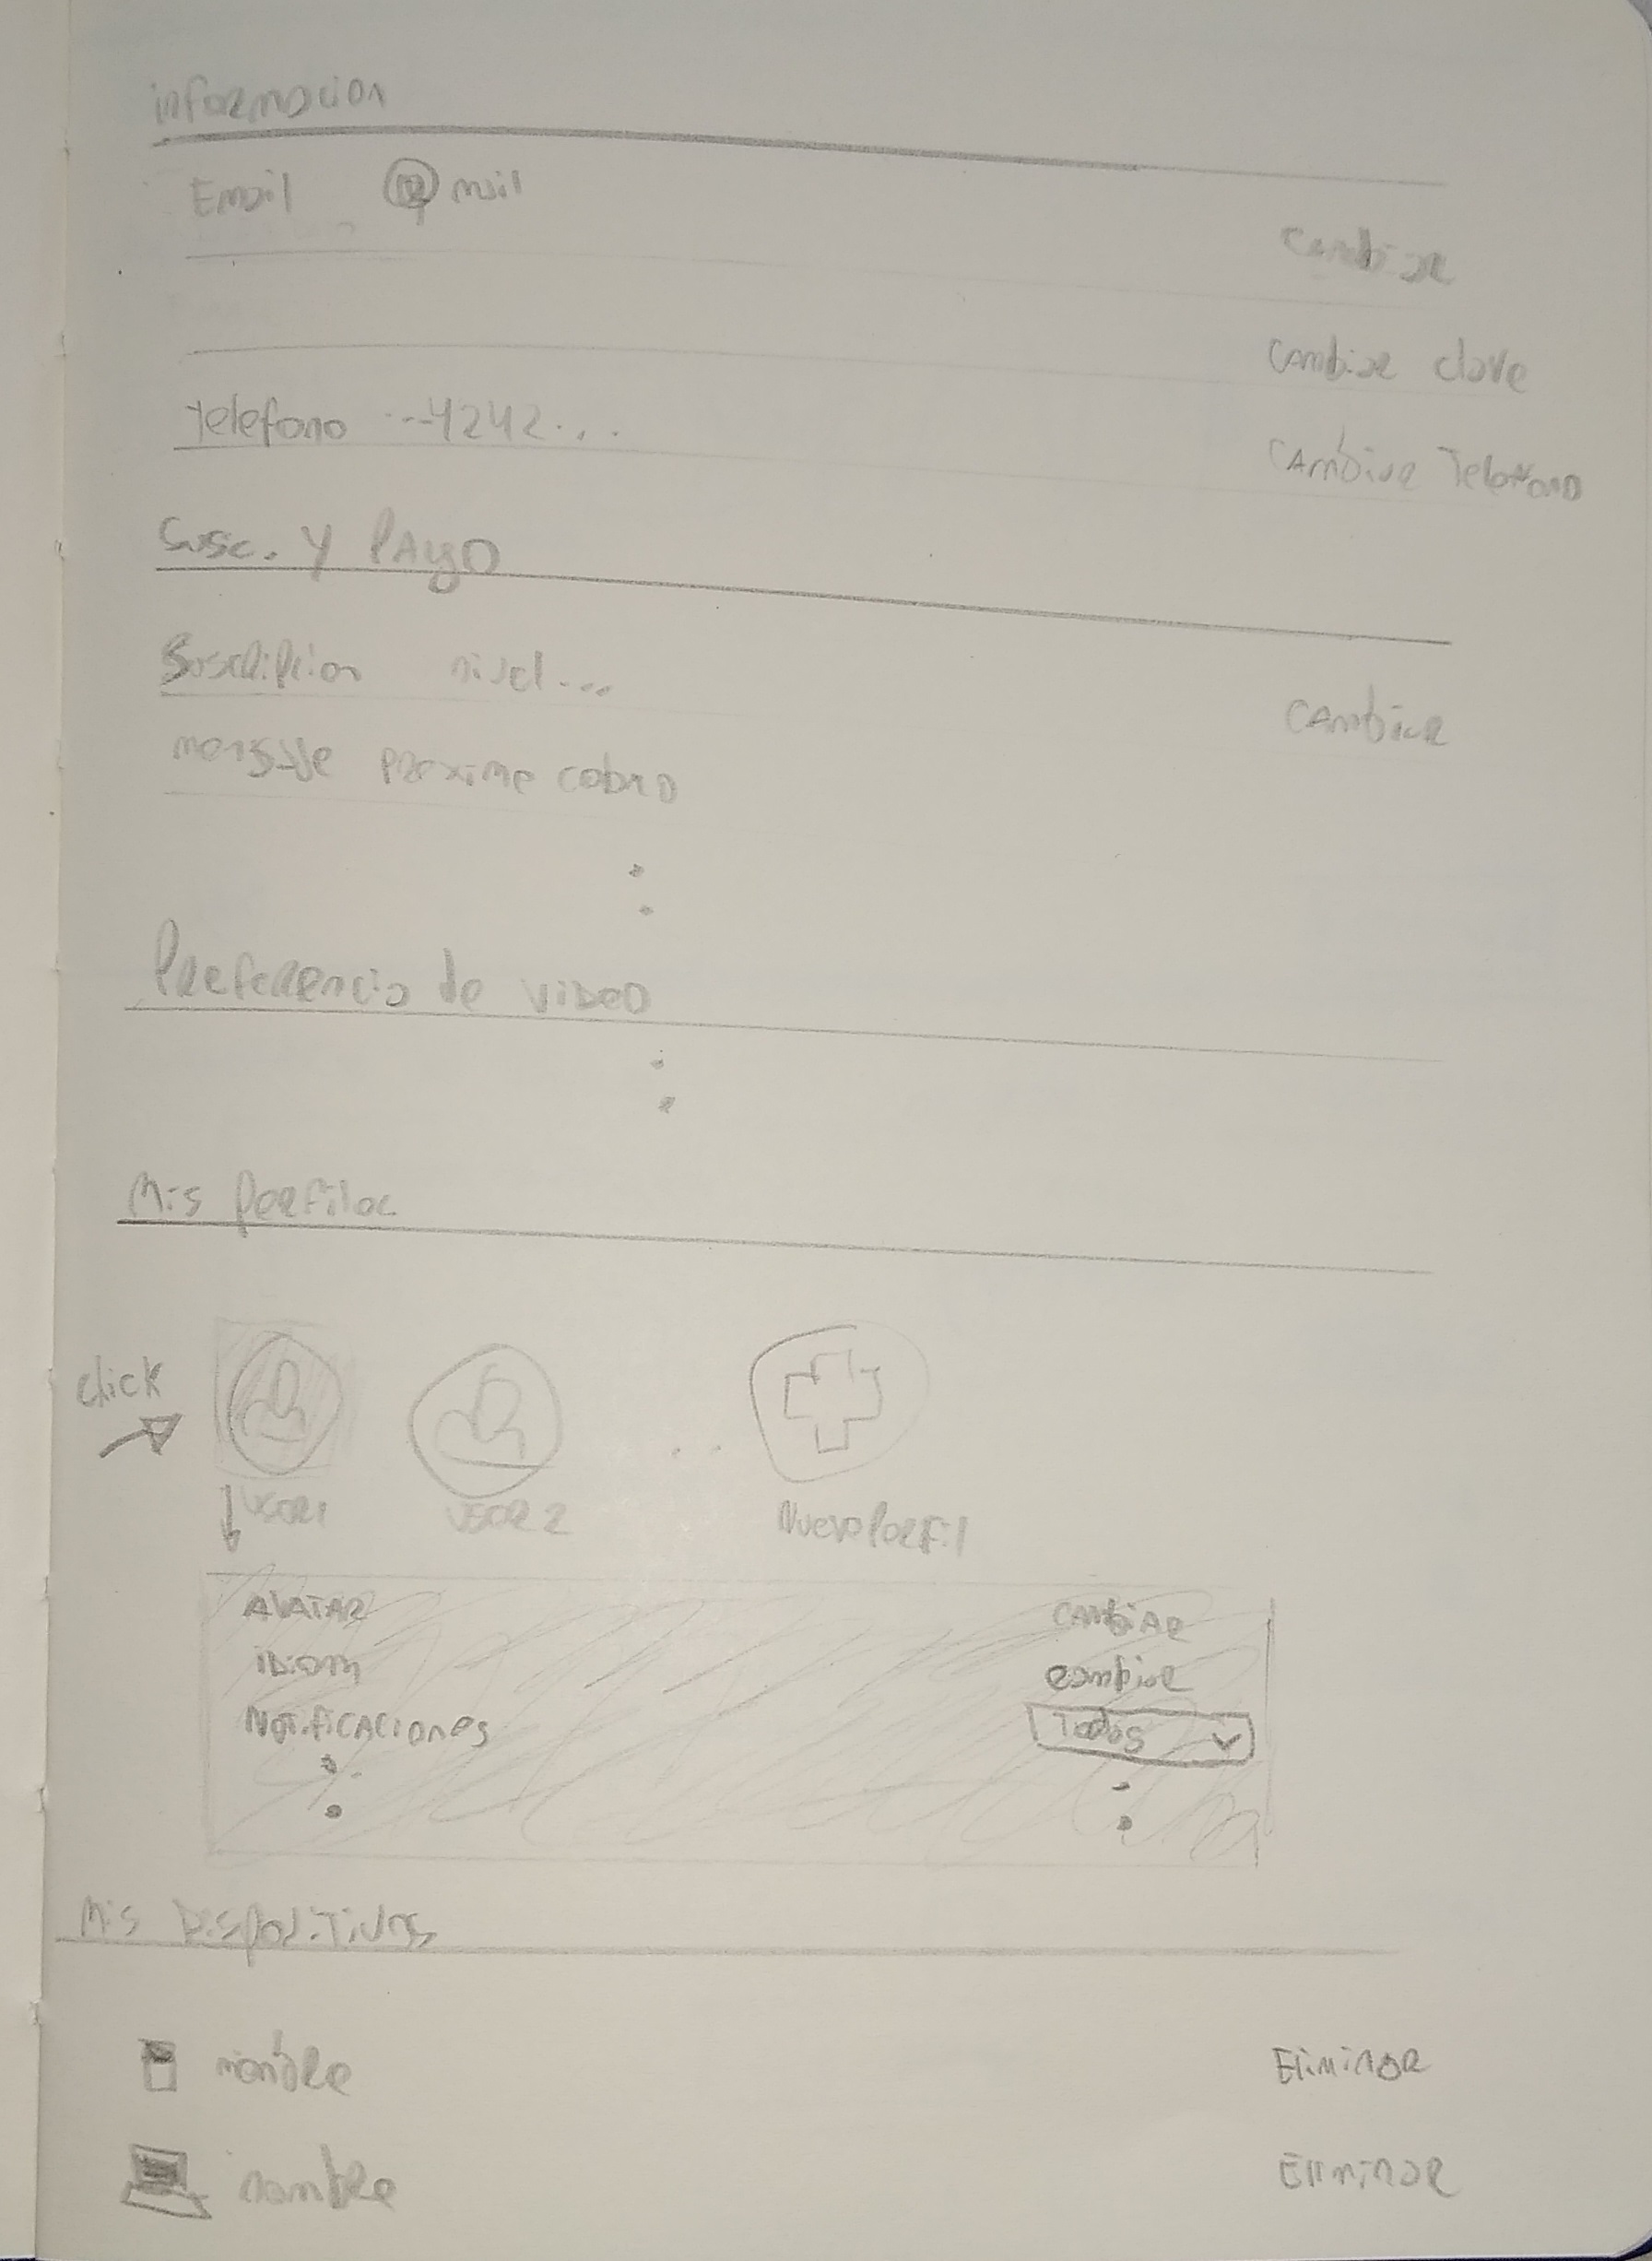 informacion
Email @mail
Cambiar
Cambiar clave
Telefono ...4242...
Cambiar Telefono
Susc. y Pago
Suscripcion nivel...
Cambiar
mensaje proximo cobro
Preferencia de video
Mis perfiles
click
USER1 USER 2 Nuevo Perfil
AVATAR Cambiar
idiom cambiar
Notificaciones Todos
Mis Dispositivos
nombre Eliminar
nombre Eliminar